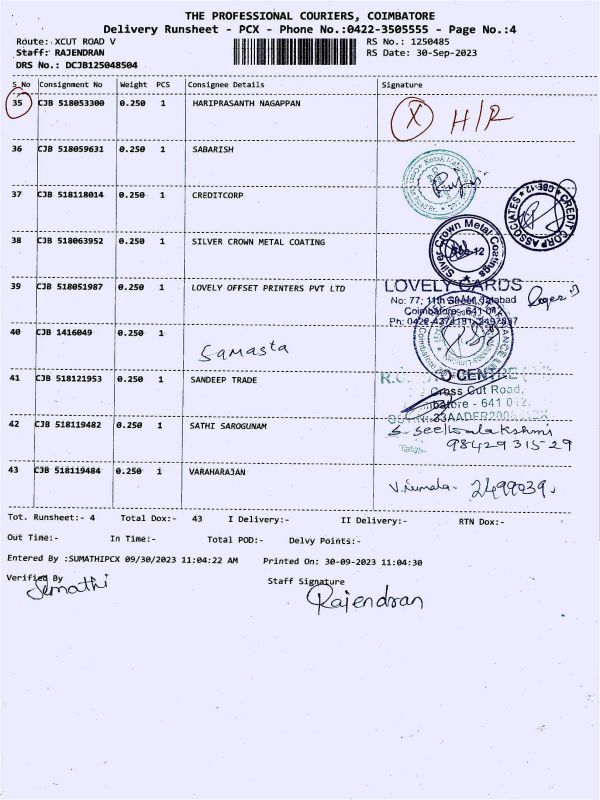 THE PROFESSIONAL COURIERS, COIMBATORE
Delivery Runsheet - PCX - Phone No.:0422-3505555 - Page No.:4
Route: XCUT ROAD V RS No.: 1250485
Staff: RAJENDRAN RS Date: 30-Sep-2023
DRS No.: DCJB125048504
S No Consignment No Weight PCS Consignee Details Signature
35 CJB 518053300 0.250 1 HARIPRASANTH NAGAPPAN
X H/R
36 CJB 518059631 0.250 1 SABARISH
37 CJB 518118014 0.250 1 CREDITCORP
CREDIT CORP ASSOCIATES * CBE-12 *
38 CJB 518063952 0.250 1 SILVER CROWN METAL COATING
Silver Crown Metal Coatings
39 CJB 518051987 0.250 1 LOVELY OFFSET PRINTERS PVT LTD
LOVELY CARDS
No: 77, 11th Street, Tatabad
Coimbatore - 641 012
40 CJB 1416049 0.250 1
Samasta
41 CJB 518121953 0.250 1 SANDEEP TRADE
CENTRE
Cross Cut Road,
- 641 012.
42 CJB 518119482 0.250 1 SATHI SAROGUNAM
98429 315 29
43 CJB 518119484 0.250 1 VARAHARAJAN
2499039
Tot. Runsheet:- 4 Total Dox:- 43 I Delivery:- II Delivery:- RTN Dox:-
Out Time:- In Time:- Total POD:- Delvy Points:-
Entered By :SUMATHIPCX 09/30/2023 11:04:22 AM Printed On: 30-09-2023 11:04:30
Verified By Staff Signature
Sumathi Rajendran